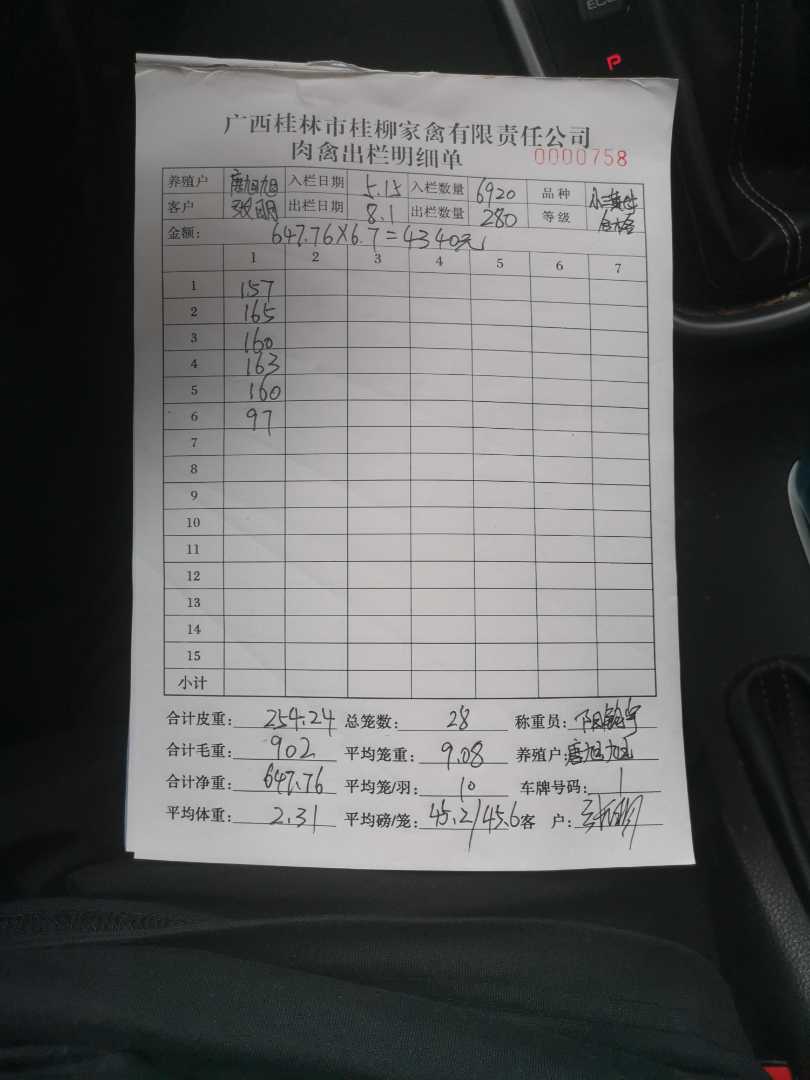 ECO
P
广西桂林市桂柳家禽有限责任公司
肉禽出栏明细单 0000758
养殖户 唐旭旭 入栏日期 5.15 入栏数量 6920 品种
客户 张明 出栏日期 8.1 出栏数量 280 等级 合格
金额: 647.76×6.7=4340元
1 2 3 4 5 6 7
1 157
2 165
3 160
4 163
5 160
6 97
7
8
9
10
11
12
13
14
15
小计
合计皮重: 254.24 总笼数: 28 称重员:
合计毛重: 902 平均笼重: 9.08 养殖户: 唐旭旭
合计净重: 647.76 平均笼/羽: 10 车牌号码: 1
平均体重: 2.31 平均磅/笼: 45.2/45.6 客 户: